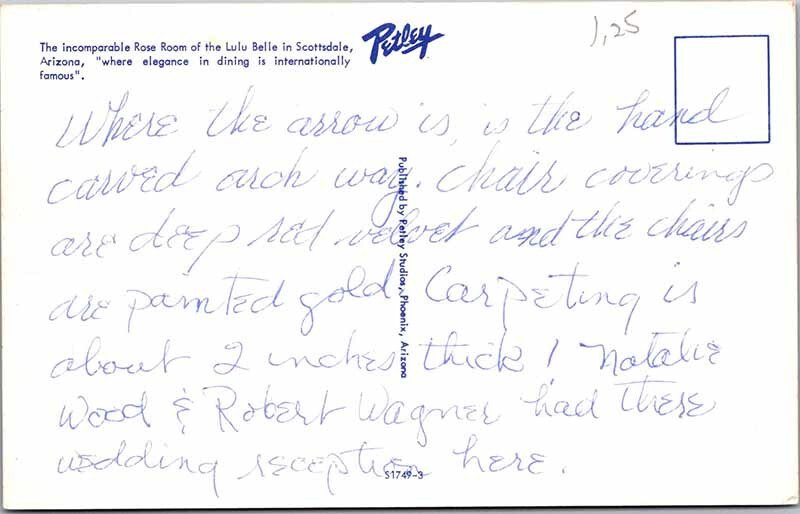 The incomparable Rose Room of the Lulu Belle in Scottsdale,
Arizona, "where elegance in dining is internationally
famous".
Petley
1,25
Where the arrow is, is the hand
carved arch way. Chair coverings
are deep red velvet and the chairs
are painted gold. Carpeting is
about 2 inches thick! Natalie
Wood & Robert Wagner had there
wedding reception here.
Published by Petley Studios, Phoenix, Arizona
S1749-3